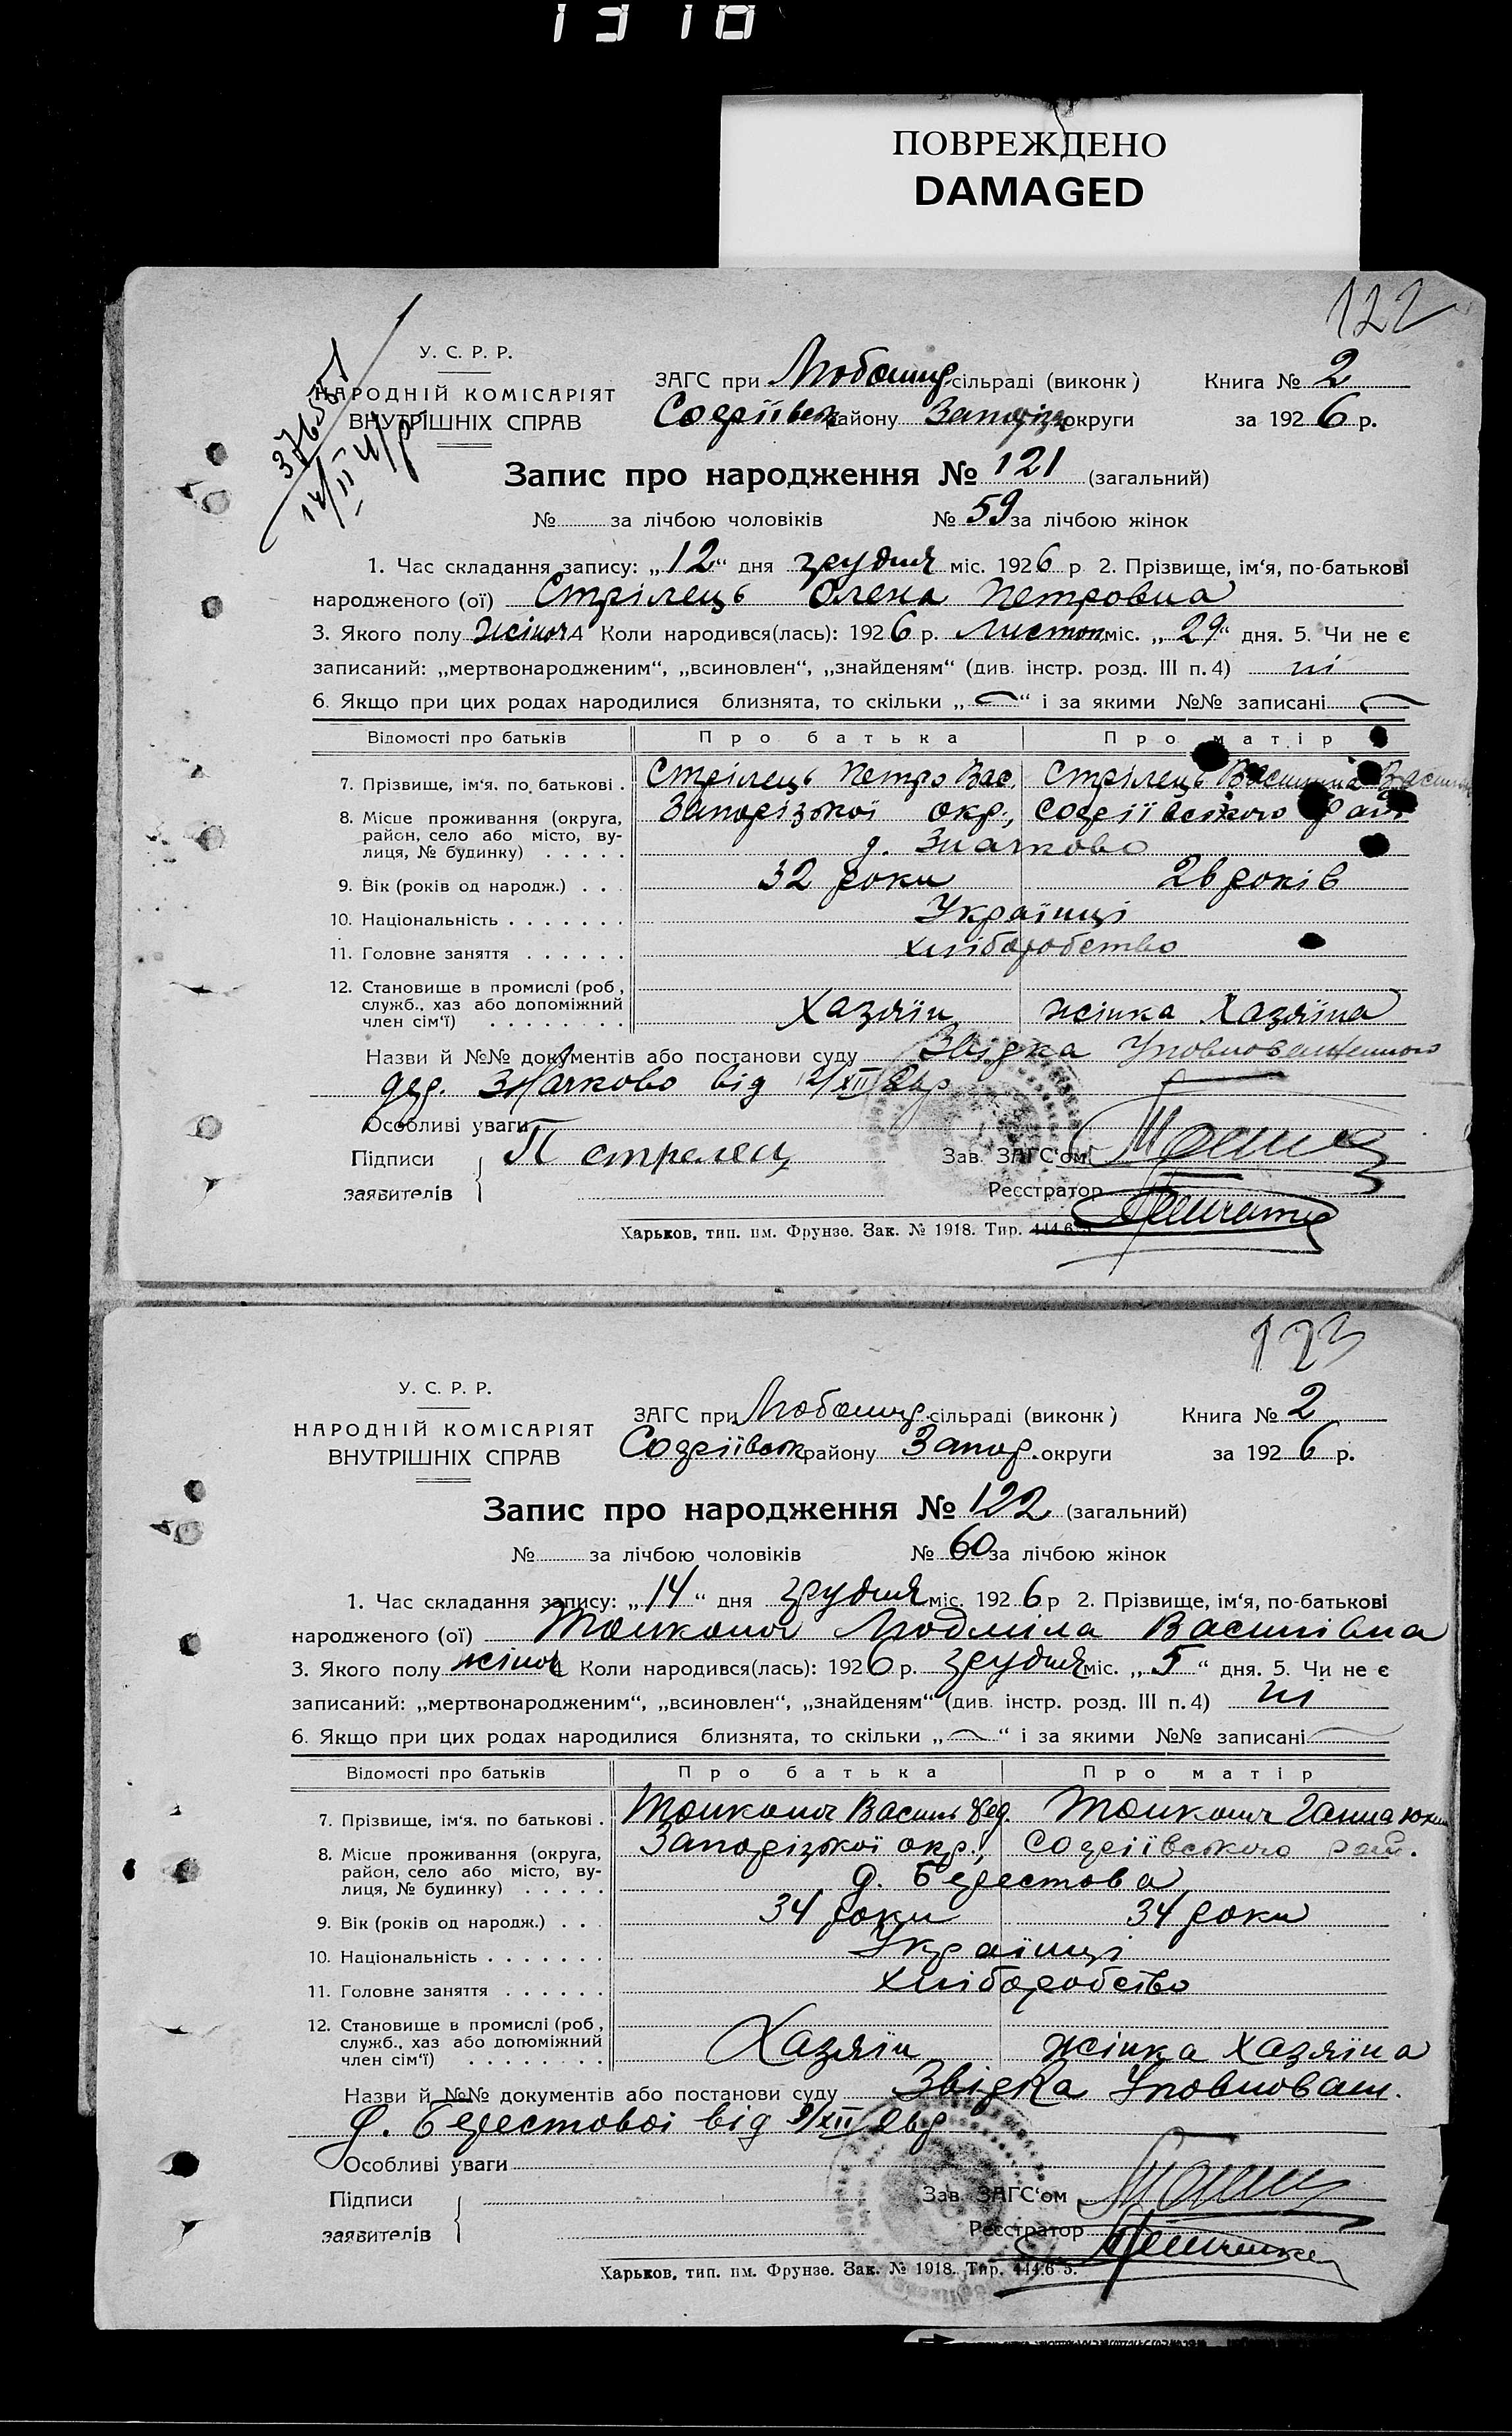 1310
ПОВРЕЖДЕНО
DAMAGED
122
У. С. Р. Р.
НАРОДНІЙ КОМІСАРІЯТ
ВНУТРІШНІХ СПРАВ
ЗАГС при Любаниц сільраді (виконк) Книга № 2
Софіївськ району Запоріж округи за 1926 р.
Запис про народження № 121 (загальний)
№ за лічбою чоловіків № 59 за лічбою жінок
1. Час складання запису: „12“ дня грудня міс. 1926 р 2. Прізвище, ім‘я, по-батькові
народженого (ої) Стрілець Олена Петровна
3. Якого полу жіноч 4 Коли народився(лась): 1926 р. Листоп. міс. „29“ дня. 5. Чи не є
записаний: „мертвонародженим“, „всиновлен“, „знайденям“ (див. інстр. розд. III п. 4) ні
6. Якщо при цих родах народилися близнята, то скільки „—“ і за якими №№ записані —
Відомості про батьків Про батька Про матір
7. Прізвище, ім‘я, по батькові . Стрілець Петро Вас. Стрілець
8. Місце проживання (округа, Запорізької окр., Софіївського рай
район, село або місто, ву-
лиця, № будинку) . . . . . д. Значково
9. Вік (років од народж.) . . . 32 роки 26 років
10. Національність . . . . . . . Українці
11. Головне заняття . . . . . . хліборобство
12. Становище в промислі (роб,
служб., хаз або допоміжний
член сім‘ї) . . . . . . . . Хазяїн жінка Хазяїна
Назви й №№ документів або постанови суду Звідка Уповноваженного
дер. Значково від 12/XII 26р
Особливі уваги
Підписи П стрелец Зав. ЗАГС‘ом
заявителів Реєстратор
Харьков, тип. им. Фрунзе. Зак. № 1918. Тир. 444.6 5.
123
У. С. Р. Р.
НАРОДНІЙ КОМІСАРІЯТ
ВНУТРІШНІХ СПРАВ
ЗАГС при Любаниц. сільраді (виконк) Книга № 2
Софіївськ району Запор. округи за 1926 р.
Запис про народження № 122 (загальний)
№ за лічбою чоловіків № 60 за лічбою жінок
1. Час складання запису: „14“ дня грудня міс. 1926 р 2. Прізвище, ім‘я, по-батькові
народженого (ої) Людміла Василівна
3. Якого полу жіноч 4 Коли народився(лась): 1926 р. грудня міс. „5“ дня. 5. Чи не є
записаний: „мертвонародженим“, „всиновлен“, „знайденям“ (див. інстр. розд. III п. 4) ні
6. Якщо при цих родах народилися близнята, то скільки „—“ і за якими №№ записані —
Відомості про батьків Про батька Про матір
7. Прізвище, ім‘я, по батькові . Василь Фед. Ганна
8. Місце проживання (округа, Запорізької окр., Софіївського рай.
район, село або місто, ву-
лиця, № будинку) . . . . . д. Берестова
9. Вік (років од народж.) . . . 34 роки 34 роки
10. Національність . . . . . . . Українці
11. Головне заняття . . . . . . хліборобство
12. Становище в промислі (роб,
служб., хаз або допоміжний
член сім‘ї) . . . . . . . . Хазяїн жінка Хазяїна
Назви й №№ документів або постанови суду Звідка Уповноваж.
д. Берестової від 9/XII 26р
Особливі уваги
Підписи Зав. ЗАГС‘ом
заявителів Реєстратор
Харьков, тип. им. Фрунзе. Зак. № 1918. Тир. 444.6 5.